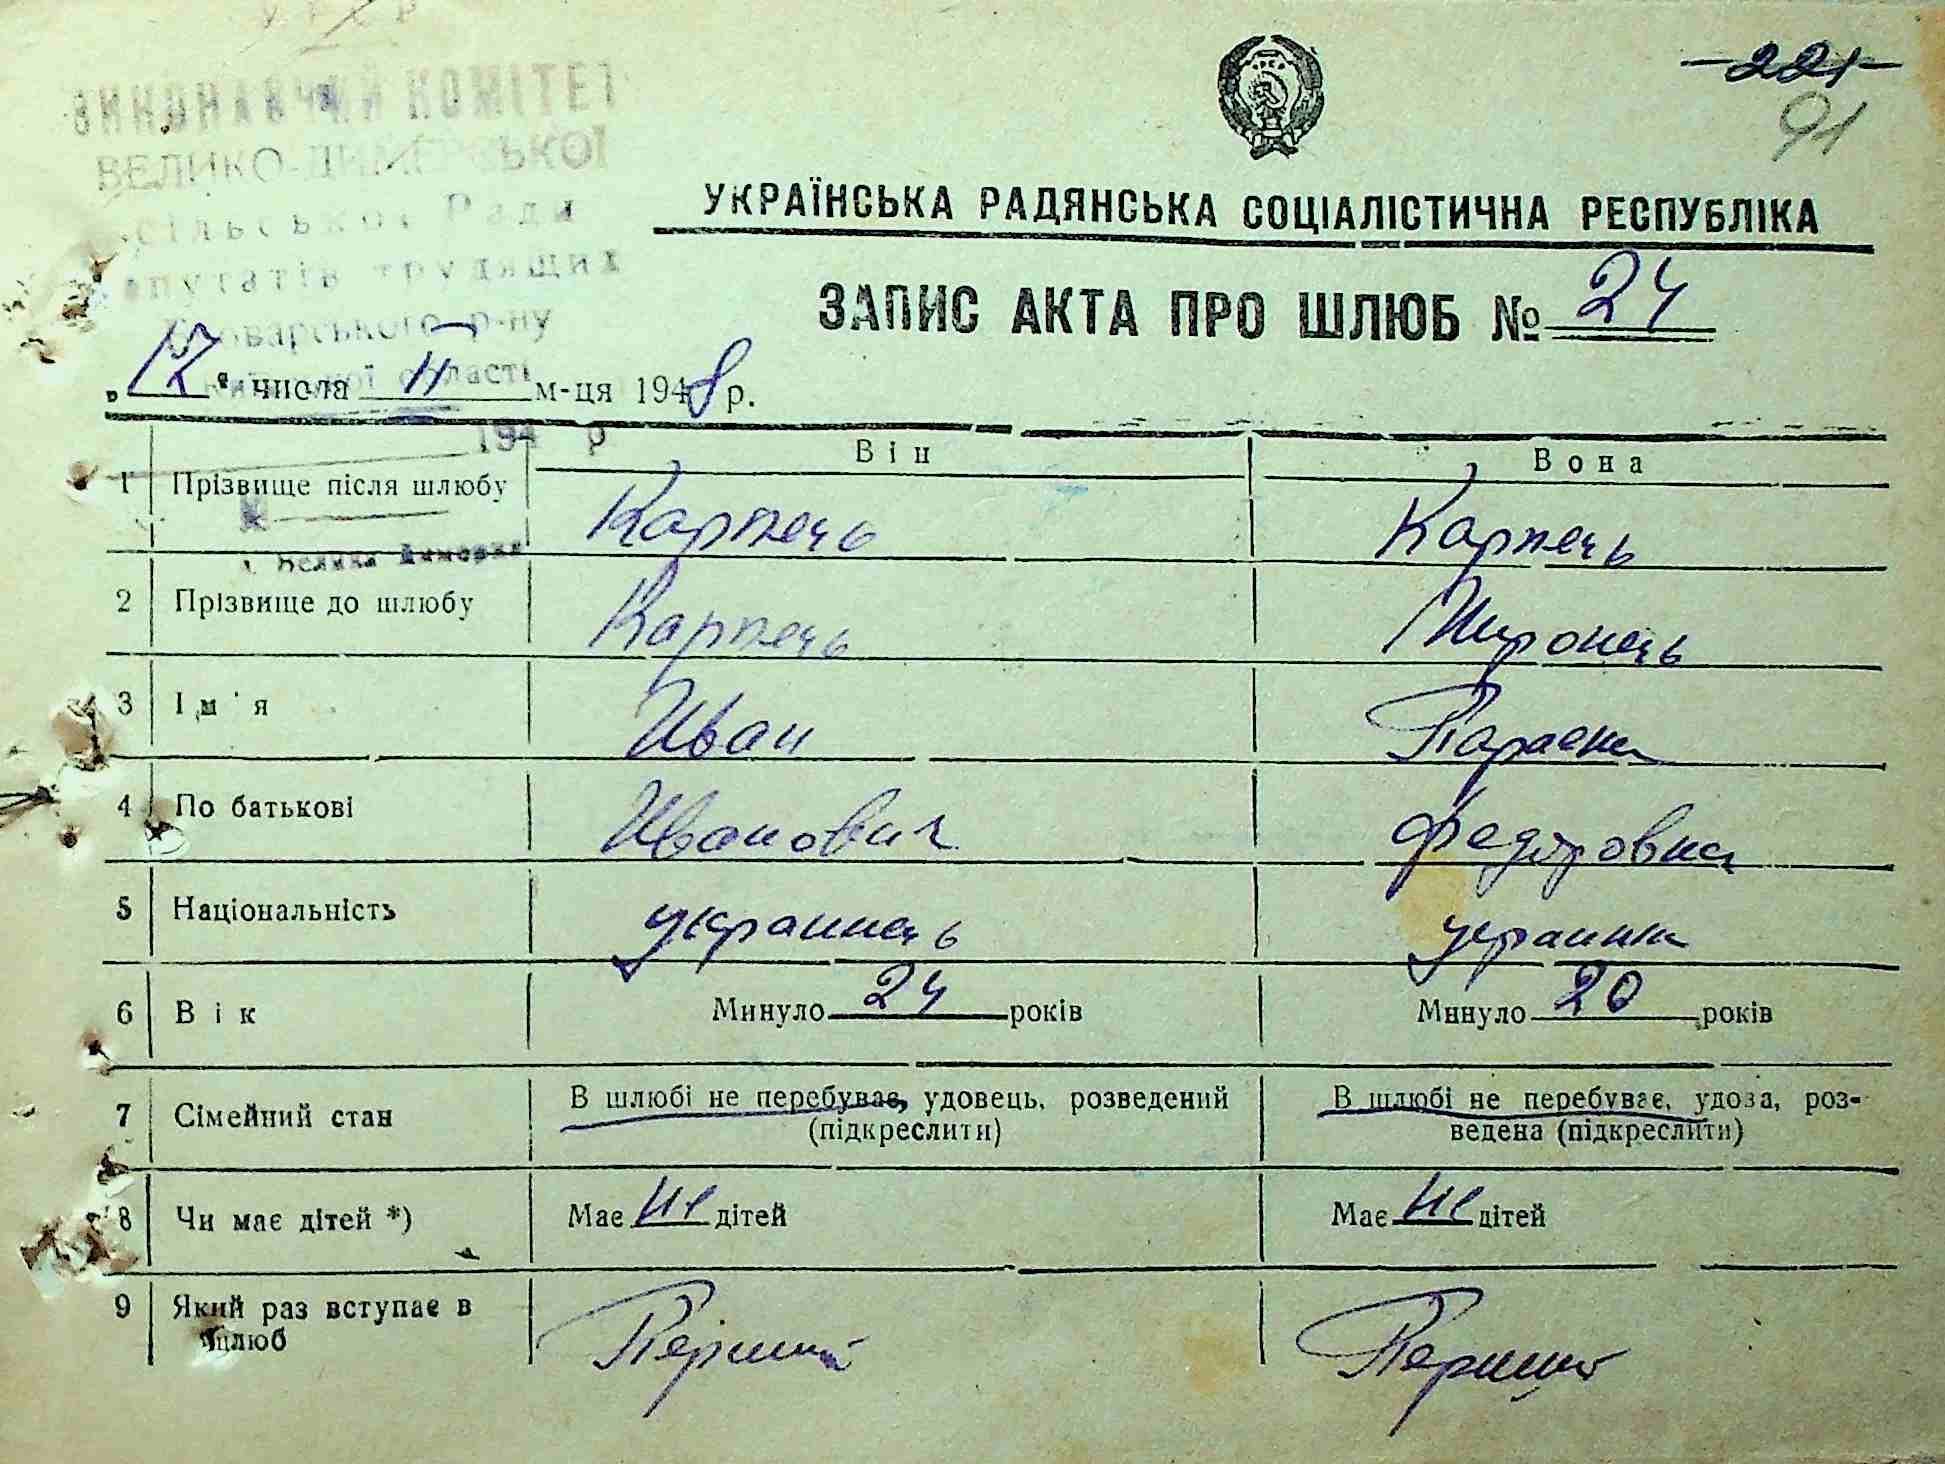 УРСР
ВИКОНАВЧИЙ КОМІТЕТ
ВЕЛИКО-ДИМЕРСЬКОЇ
сільської Ради
депутатів трудящих
Броварського р-ну
Київської області
194 р
с. Велика Димерка
221
91
УКРАЇНСЬКА РАДЯНСЬКА СОЦІАЛІСТИЧНА РЕСПУБЛІКА
ЗАПИС АКТА ПРО ШЛЮБ № 24
„12“ числа II м-ця 1948 р.
Він Вона
1 Прізвище після шлюбу Карпець Карпець
2 Прізвище до шлюбу Карпець Миронець
3 Ім'я Иван Параска
4 По батькові Иванович Федоровна
5 Національність украинець украинка
6 Вік Минуло 24 років Минуло 20 років
7 Сімейний стан В шлюбі не перебуває, удовець, розведений (підкреслити) В шлюбі не перебуває, удова, роз-
ведена (підкреслити)
8 Чи має дітей *) Має не дітей Має не дітей
9 Який раз вступає в шлюб Перший Перший